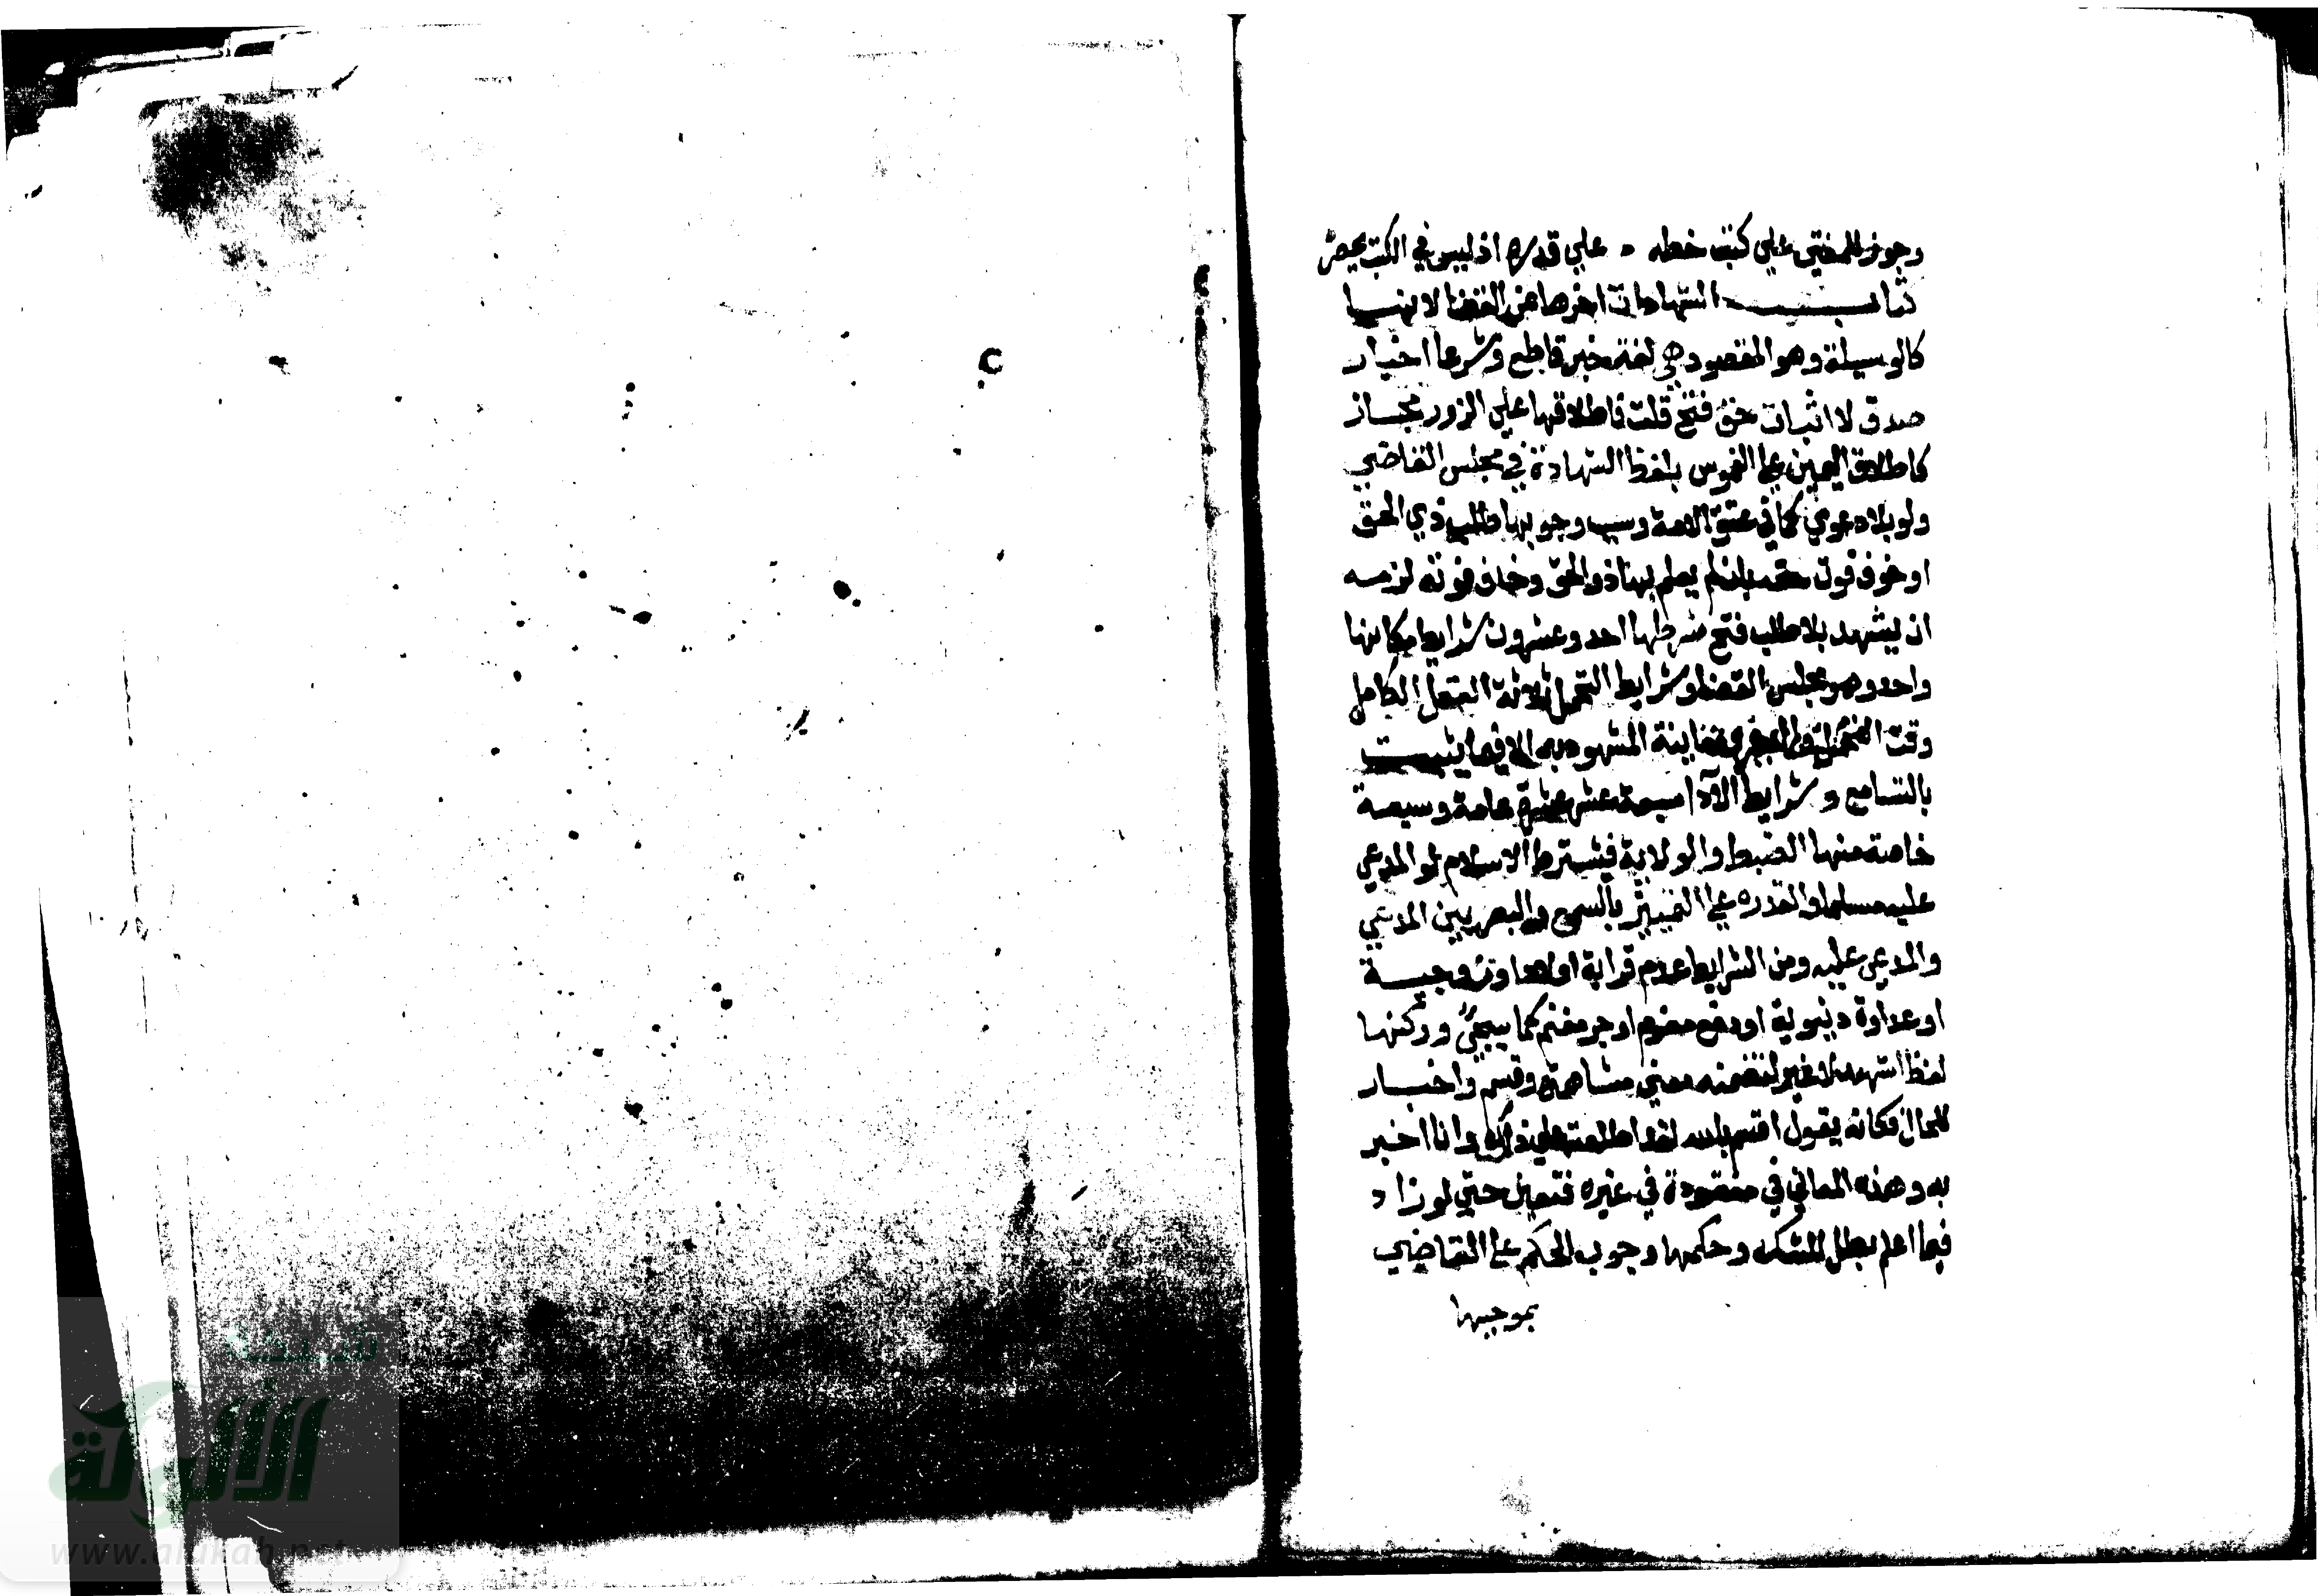 وجوز للمفتي علي كتب خطه علي قدره اذ ليس في الكتب يحصر
كتاب الشهادات اخرها عن القضا لانها
كالوسيلة وهو المقصود هي لغة خبر قاطع وشرعا اخبار
صدق لاثبات حق فتح قلت فاطلاقها علي الزور مجاز
كاطلاق اليمين علي الغموس بلفظ الشهادة في مجلس القاضي
ولو بلا دعوي كما في عتق الامة وسبب وجوبها طلب ذي الحق
او خوف فوت حقه بان لم يعلم بها ذو الحق وخاف فوته لزمه
ان يشهد بلا طلب فتح شرطها احد وعشرون شرايط مكانها
واحد وهو مجلس القضا وشرايط التحمل ثلاثة العقل الكامل
وقت التحمل والبصر ومعاينة المشهود به الا فيما يثبت
بالتسامع وشرايط الآدا سبعة عشر عشرة عامة وسبعة
خاصة منها الضبط والولاية فيشترط الاسلام لو المدعي
عليه مسلما والقدره علي التمييز بالسمع والبصر بين المدعي
والمدعي عليه ومن الشرايط عدم قرابة اولاد او زوجية
او عداوة دنيوية او دفع مغرم او جر مغنم كما سيجيء وركنها
لفظ اشهد لا غير لتضمنه معني مشاهدة وقسم واخبار
للحال فكانه يقول اقسم بالله لقد اطلعت علي ذلك وانا اخبر
به وهذه المعاني في مفقودة في غيره فتعين حتي لو زاد
فيما اعلم بطل للشك وحكمها وجوب الحكم علي القاضي
بموجبها
شبكة
الألوكة
www.alukah.net